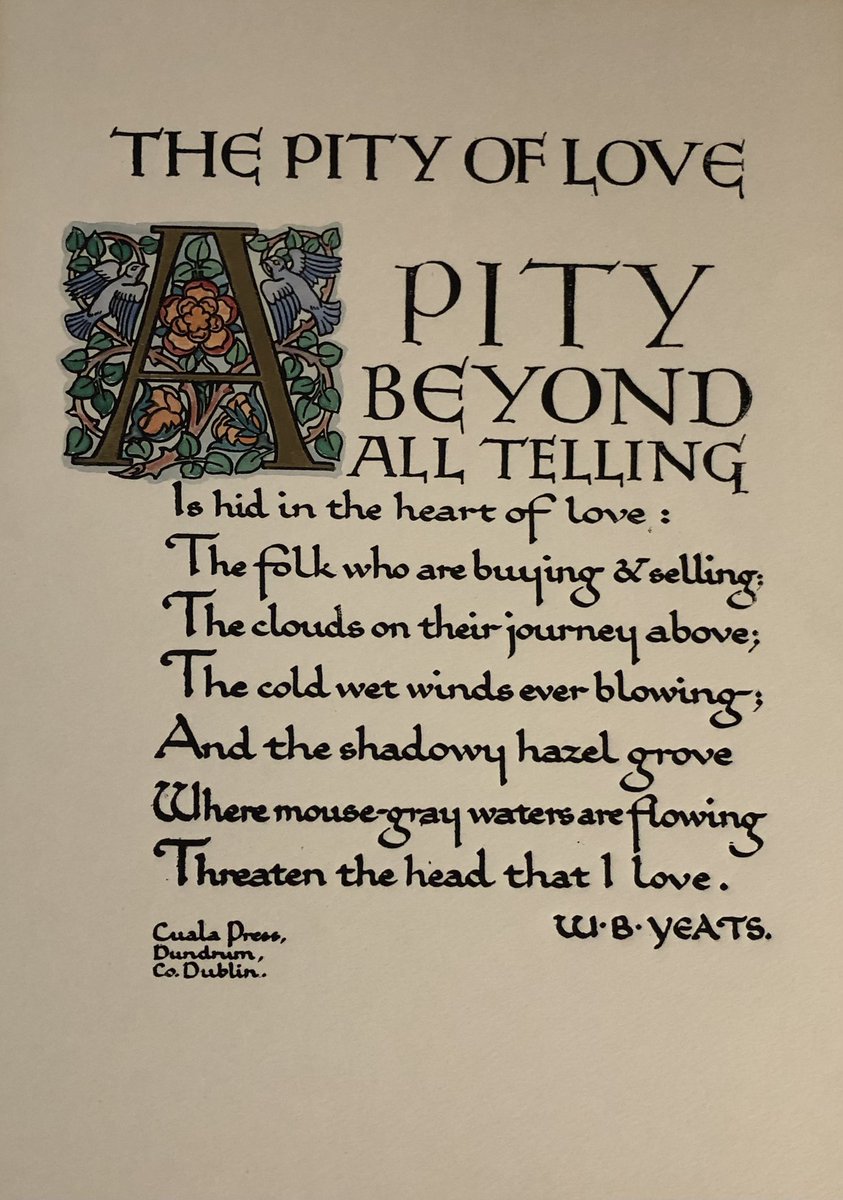 THE PITY OF LOVE
A PITY
BEYOND
ALL TELLING
Is hid in the heart of love :
The folk who are buying & selling;
The clouds on their journey above;
The cold wet winds ever blowing;
And the shadowy hazel grove
Where mouse-gray waters are flowing
Threaten the head that I love.
W·B·YEATS.
Cuala Press,
Dundrum,
Co. Dublin.